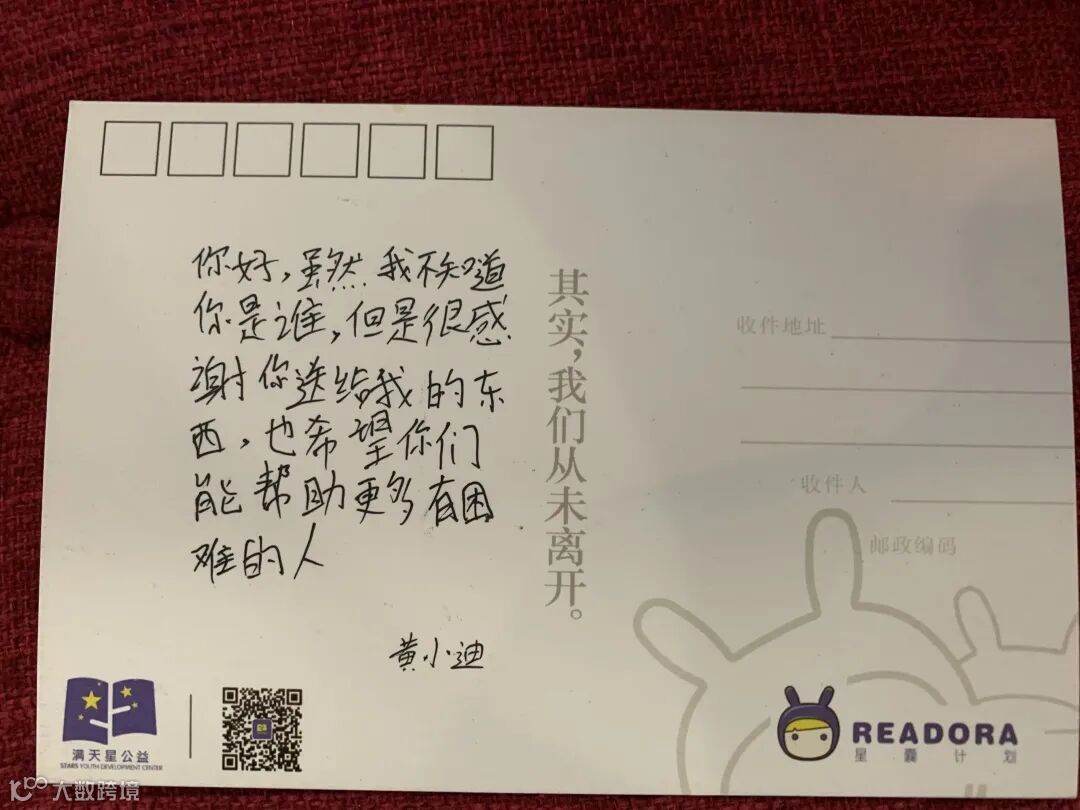 你好，虽然我不知道
你是谁，但是很感
谢你送给我的东
西，也希望你们
能帮助更多有困
难的人
黄小迪
其实，我们从未离开。
收件地址
收件人
邮政编码
满天星公益
STARS YOUTH DEVELOPMENT CENTER
READORA
星囊计划
大数跨境